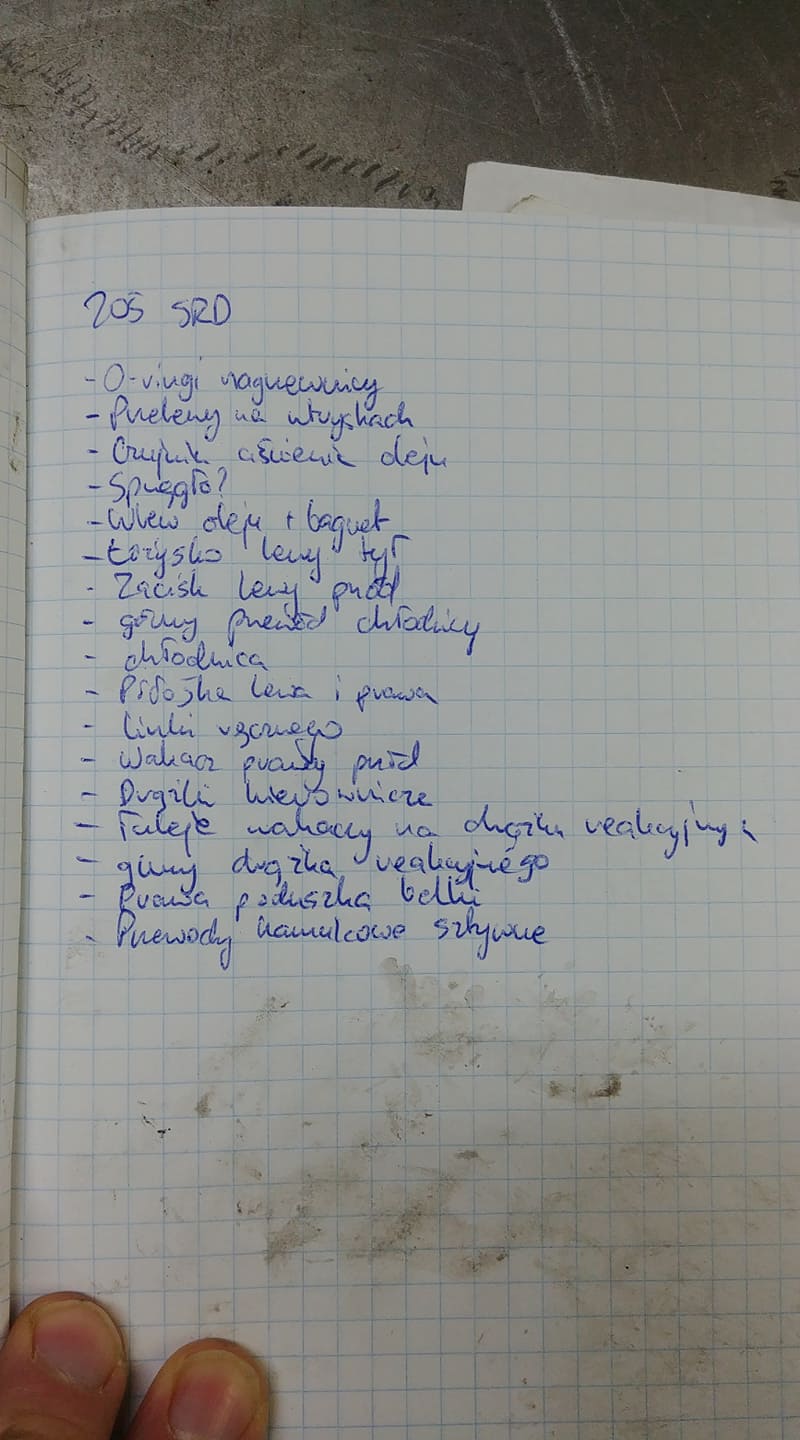 205 SRD
- O-ringi nagrzewnicy
- Przelewy na wtryskach
- Czujnik ciśnienia oleju
- Sprzęgło?
- Wlew oleju + bagnet
- Łożysko lewy tył
- Zacisk lewy przód
- górny przewód chłodnicy
- chłodnica
- Półośka lewa i prawa
- linki ręcznego
- Wahacz prawy przód
- Drążki kierownicze
- Tuleje wahaczy na drążku reakcyjnym
- gumy drążka reakcyjnego
- Prawa poduszka belki
- Przewody hamulcowe sztywne